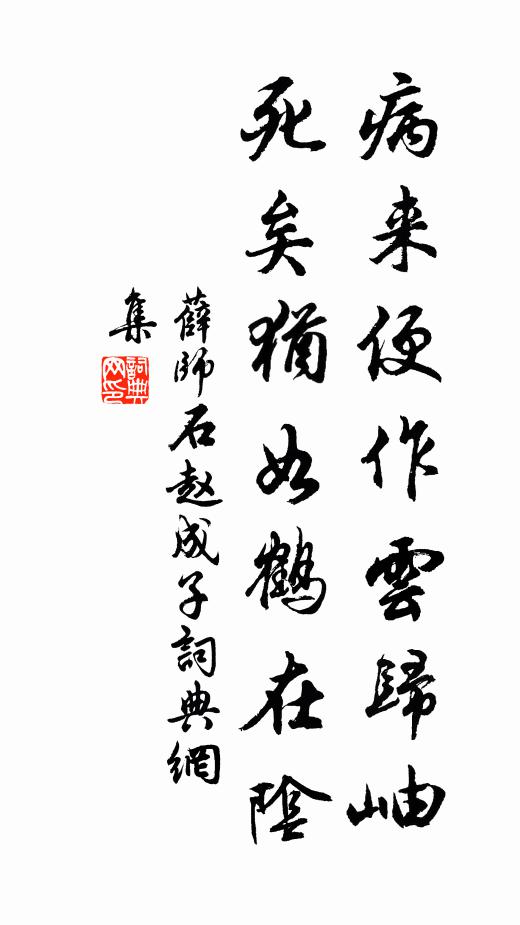 病来便作雲歸岫
死矣猶如鶴在陰
薛師石赵成子詞典網
集
詞典網印